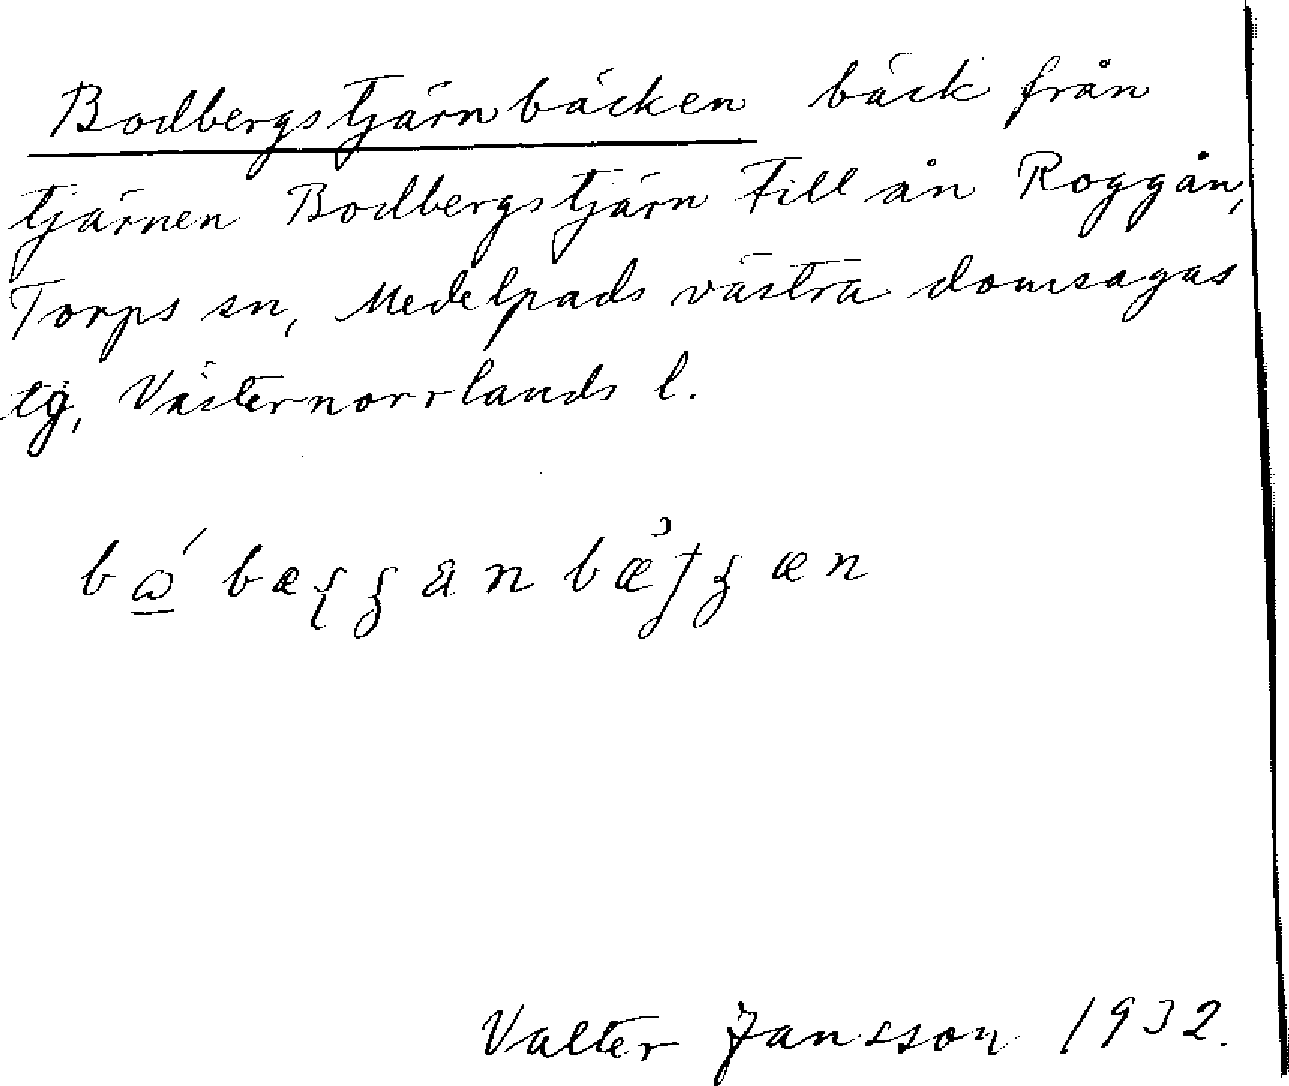 Bodbergstjärnbäcken bäck från
tjärnen Bodbergstjärn till ån Roggån,
Torps sn, Medelpads västra domsagas
tg, Västernorrlands l.
Valter Jansson 1932.